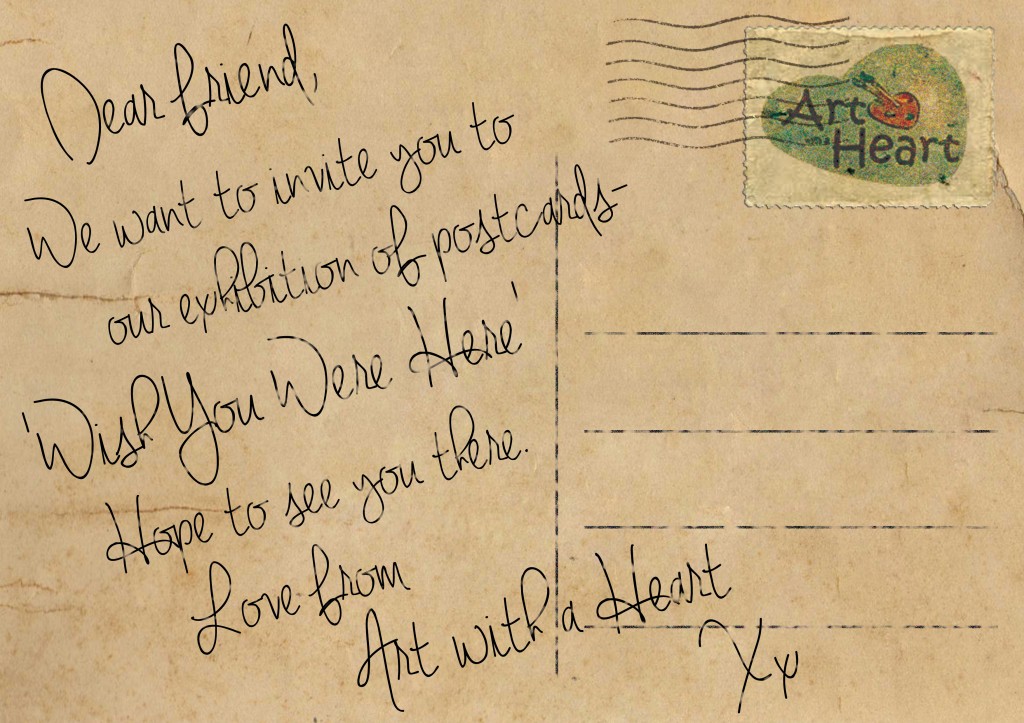 Dear friend,
We want to invite you to
our exhibition of postcards-
'Wish You Were Here'
Hope to see you there.
Love from
Art with a Heart
Xx
Art
with a
Heart